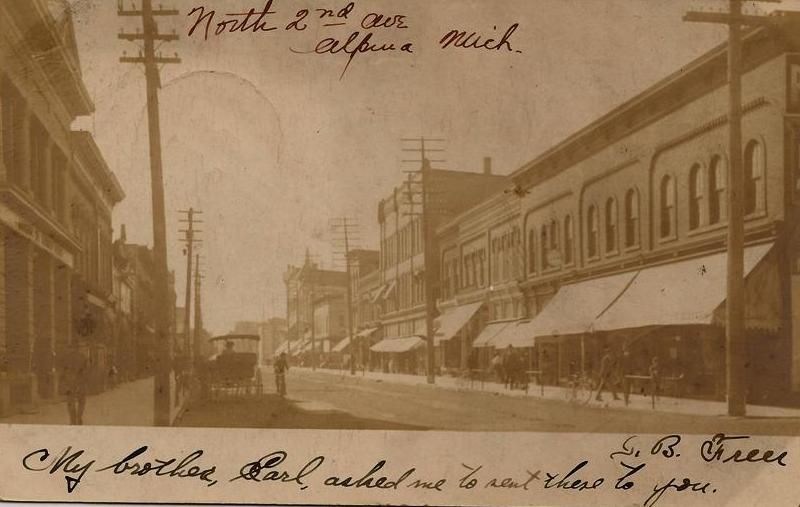 North 2nd ave
Alpena Mich.
G. B. Freer
My brother, Earl, asked me to sent these to you.